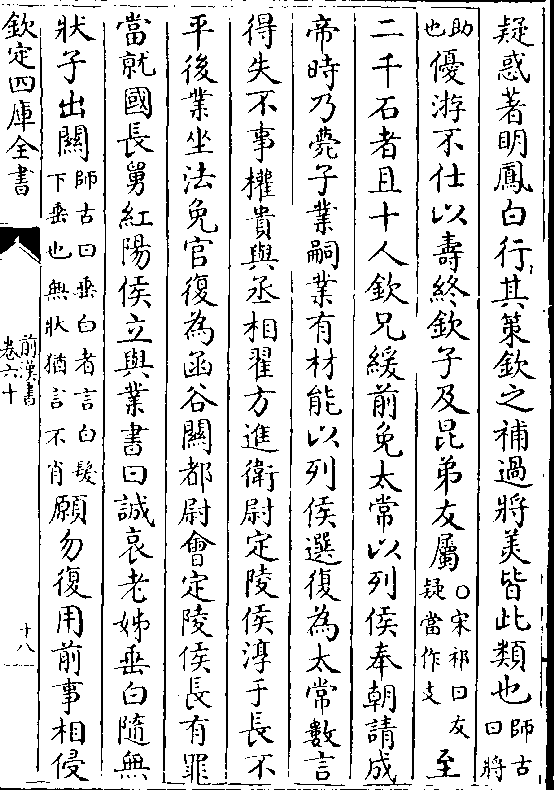 疑惑著明鳳白行其策欽之補過將美皆此類也師古曰將
助也優游不仕以壽終欽子及昆弟友屬○宋祁曰友疑當作支至
二千石者且十人欽兄緩前免太常以列侯奉朝請成
帝時乃薨子業嗣業有材能以列侯選復為太常數言
得失不事權貴與丞相翟方進衛尉定陵侯淳于長不
平後業坐法免官復為函谷關都尉會定陵侯長有罪
當就國長舅紅陽侯立與業書曰誠哀老姊垂白隨無
狀子出關師古曰垂白者言白髮下垂也無狀猶言不肖願勿復用前事相侵
欽定四庫全書
前漢書
卷六十
十八